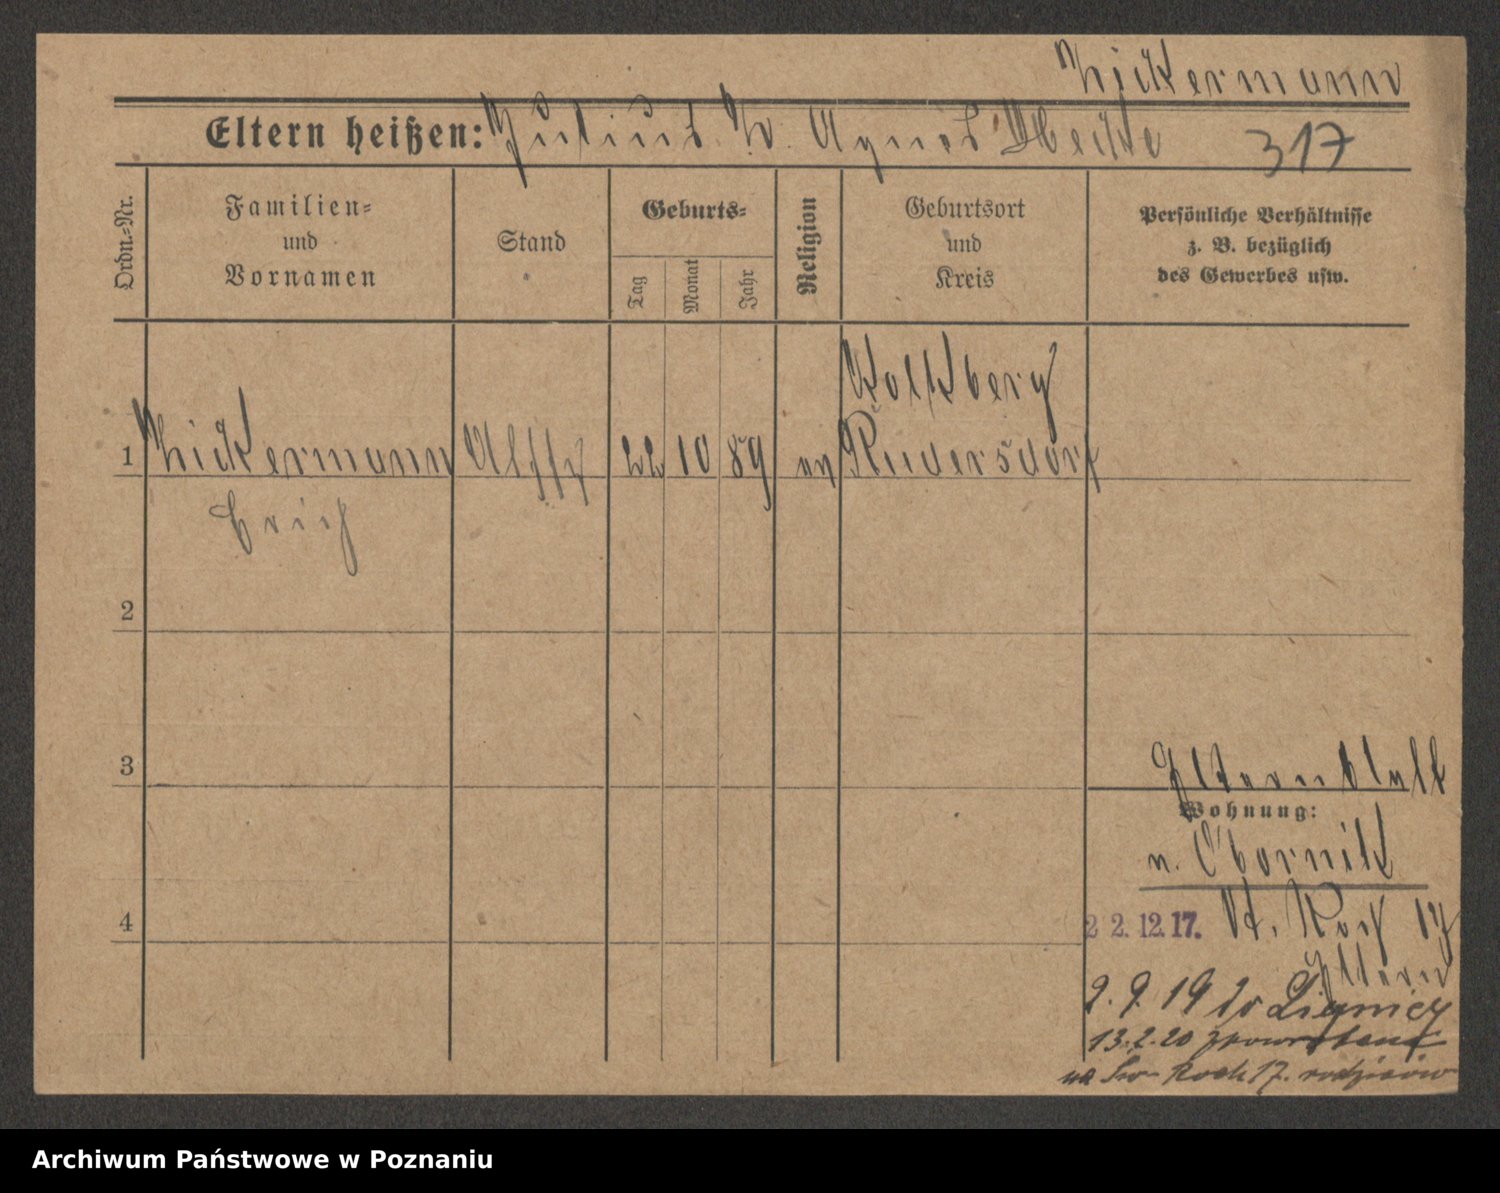 Zickermann
Eltern heißen: Julius Z. Agnes
317
Ordn.=Nr.
Familien=
und
Vornamen
Stand
Geburts=
Tag
Monat
Jahr
Religion
Geburtsort
und
Kreis
Persönliche Verhältnisse
z. B. bezüglich
des Gewerbes usw.
Wolfsberg
1 Zickermann 22 10 89 ev Rudersdorf
Erich
2
3
Elternblatt
Wohnung:
n. Obornik
4
2 2. 12. 17. St. Roch 17
Eltern
2. 9. 19 Liegnicy
13.2.20 z powrotem
na Św Roch 17. rodziców
Archiwum Państwowe w Poznaniu